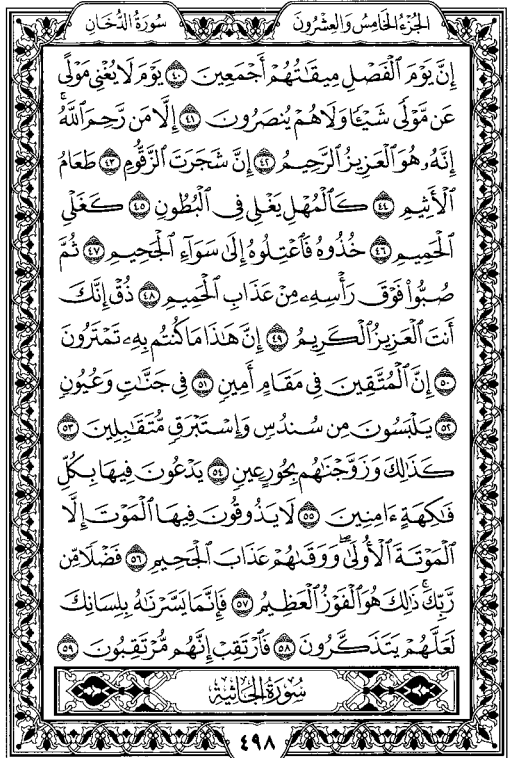 الجزء الخامس والعشرون
سورة الدخان
إِنَّ يَوْمَ الْفَصْلِ مِيقَاتُهُمْ أَجْمَعِينَ ٤٠ يَوْمَ لَا يُغْنِي مَوْلًى
عَن مَّوْلًى شَيْئًا وَلَا هُمْ يُنصَرُونَ ٤١ إِلَّا مَن رَّحِمَ اللَّهُ ۚ
إِنَّهُ هُوَ الْعَزِيزُ الرَّحِيمُ ٤٢ إِنَّ شَجَرَتَ الزَّقُّومِ ٤٣ طَعَامُ
الْأَثِيمِ ٤٤ كَالْمُهْلِ يَغْلِي فِي الْبُطُونِ ٤٥ كَغَلْيِ
الْحَمِيمِ ٤٦ خُذُوهُ فَاعْتِلُوهُ إِلَىٰ سَوَاءِ الْجَحِيمِ ٤٧ ثُمَّ
صُبُّوا فَوْقَ رَأْسِهِ مِنْ عَذَابِ الْحَمِيمِ ٤٨ ذُقْ إِنَّكَ
أَنتَ الْعَزِيزُ الْكَرِيمُ ٤٩ إِنَّ هَٰذَا مَا كُنتُم بِهِ تَمْتَرُونَ
٥٠ إِنَّ الْمُتَّقِينَ فِي مَقَامٍ أَمِينٍ ٥١ فِي جَنَّاتٍ وَعُيُونٍ
٥٢ يَلْبَسُونَ مِن سُندُسٍ وَإِسْتَبْرَقٍ مُّتَقَابِلِينَ ٥٣
كَذَٰلِكَ وَزَوَّجْنَاهُم بِحُورٍ عِينٍ ٥٤ يَدْعُونَ فِيهَا بِكُلِّ
فَاكِهَةٍ آمِنِينَ ٥٥ لَا يَذُوقُونَ فِيهَا الْمَوْتَ إِلَّا
الْمَوْتَةَ الْأُولَىٰ ۖ وَوَقَاهُمْ عَذَابَ الْجَحِيمِ ٥٦ فَضْلًا مِّن
رَّبِّكَ ۚ ذَٰلِكَ هُوَ الْفَوْزُ الْعَظِيمُ ٥٧ فَإِنَّمَا يَسَّرْنَاهُ بِلِسَانِكَ
لَعَلَّهُمْ يَتَذَكَّرُونَ ٥٨ فَارْتَقِبْ إِنَّهُم مُّرْتَقِبُونَ ٥٩
سُورَةُ الْجَاثِيَةِ
٤٩٨